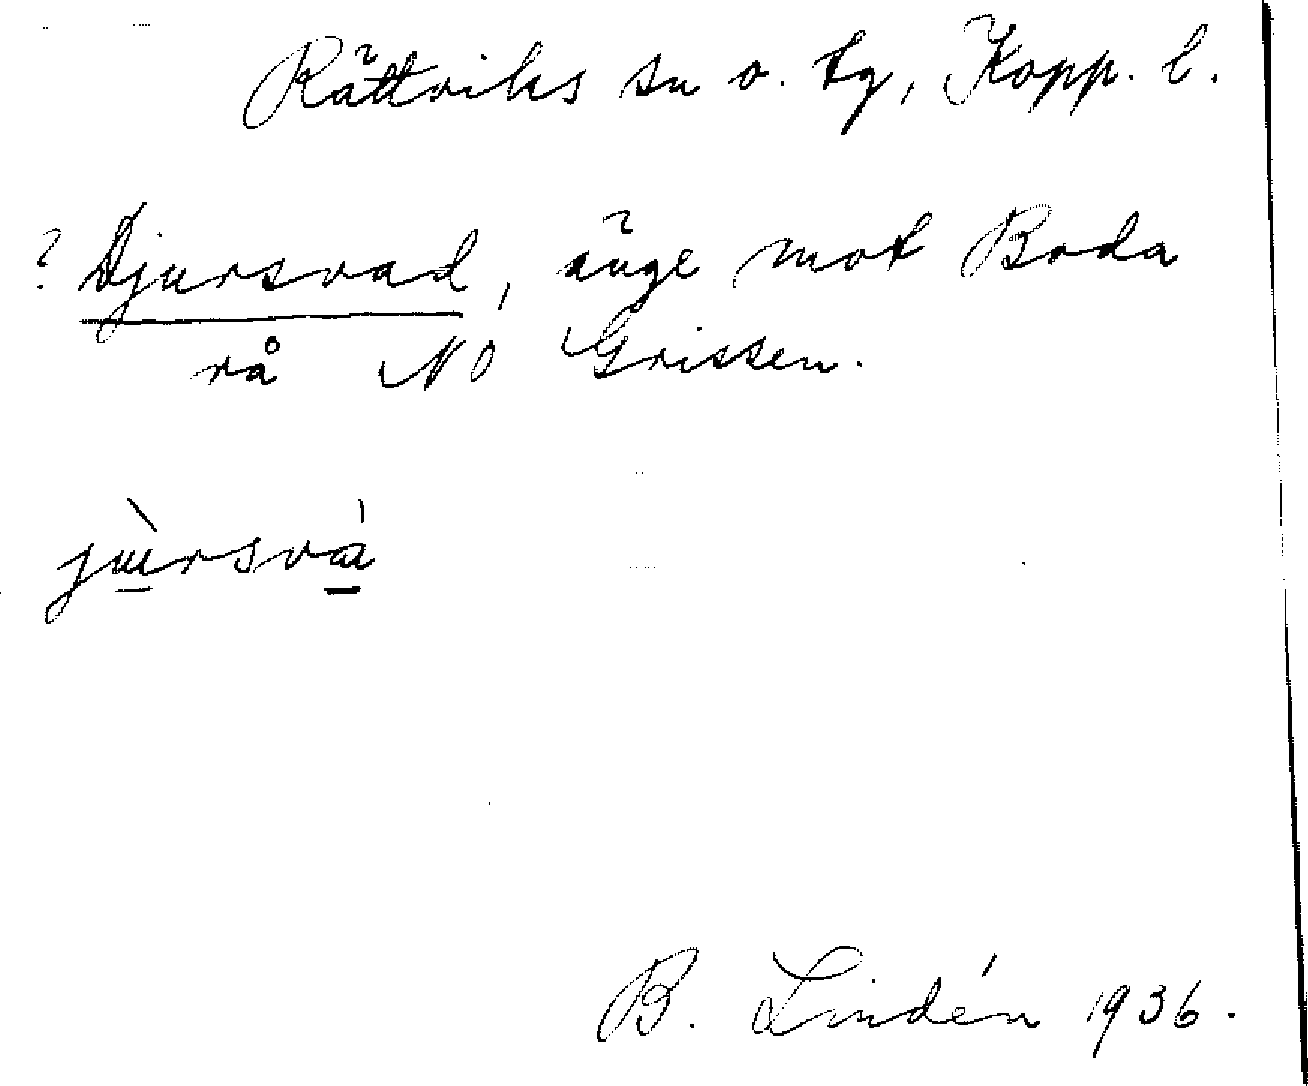 Rättviks sn o. tg, Kopp. l.
? Djursvad, änge mot Boda
rå NO Grissen.
jùrsvá
B. Lindén 1936.